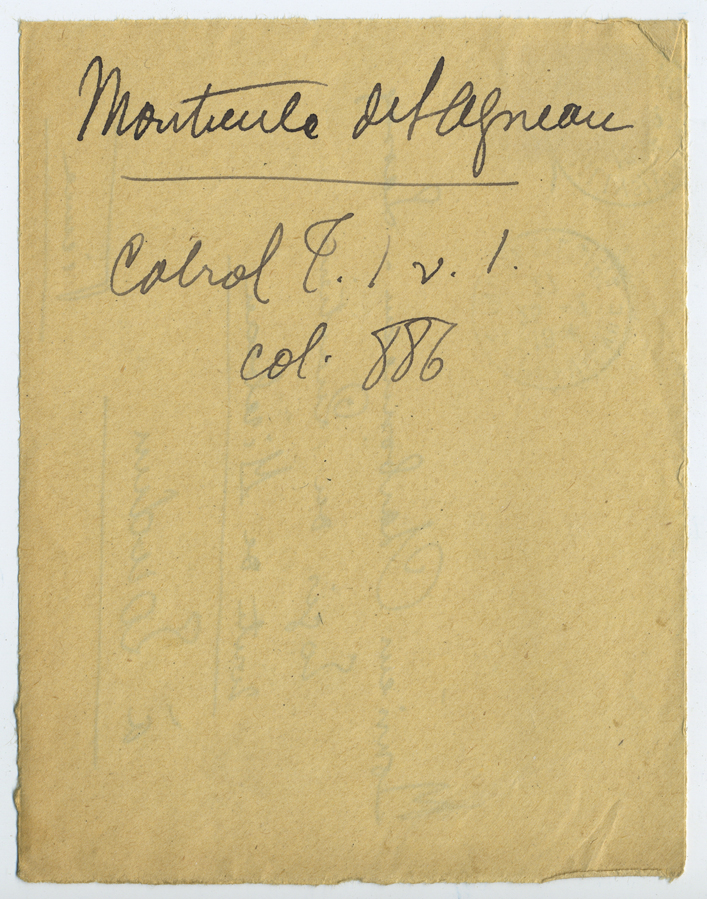 Monticule de l'Agneau
Cabrol T. 1 v. 1.
col. 886